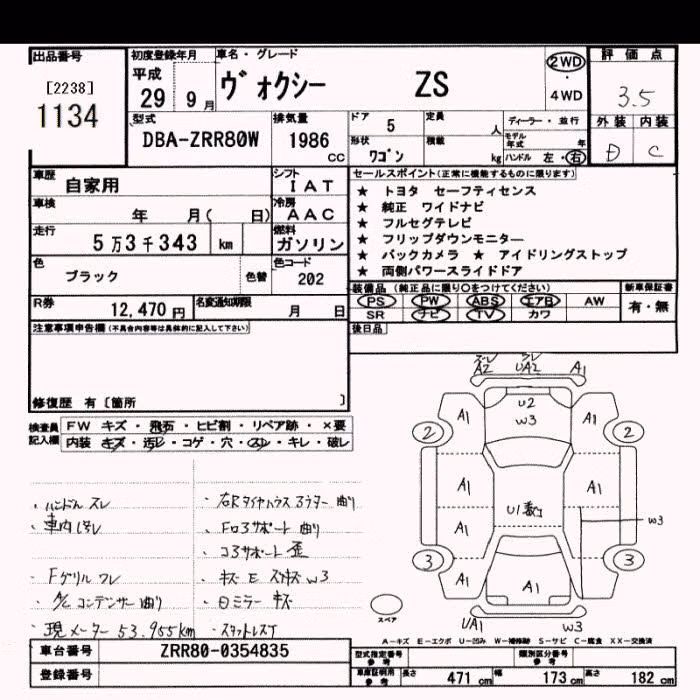 出品番号 初度登録年月 車名・グレード 評価点
[2238] 平成 ヴォクシー ZS 2WD ・ 4WD 3.5
1134 29年 9月
型式 排気量 ドア 5 定員 人 ディーラー・並行 外装 内装
DBA-ZRR80W 1986 cc 形状 ワゴン 積載 kg モデル年式 年 D C
ハンドル 左・右
車歴 自家用 シフト IAT セールスポイント(正常に機能するものに限ります)
車検 年 月( 日) 冷房 AAC ★ トヨタ セーフティセンス
★ 純正 ワイドナビ
走行 5万3千343 km 燃料 ガソリン ★ フルセグテレビ
★ フリップダウンモニター
色 ブラック 色替 色コード 202 ★ バックカメラ ★ アイドリングストップ
★ 両側パワースライドドア
R券 12,470円 名変通知期限 月 日 装備品 (純正品に限り○をつけてください) 新車保証書
PS PW ABS エアB AW 有・無
SR ナビ TV カワ
注意事項申告欄(不具合内容等は具体的に記入して下さい) 後日品
修復歴 有〔箇所 〕
検査員記入欄 FW キズ・飛石・ヒビ割・リペア跡・×要
内装 キズ・汚レ・コゲ・穴・スレ・キレ・破レ
ズレ A2 UA2 A1
U2 W3
A1 A1
2 2
A1 U1数コ A1
A1 W3
3 3
A1 A1
UA1 W3
・ハンドル スレ
・車内 汚レ
・Fグリル ワレ
・A/C コンデンサー曲り
・現メーター 53,955km
・右Rタイヤハウス
・Fロアサポート 曲り
・コアサポート 歪
・キズ E W3
・ミラー キズ
スペア
A-キズ E-エクボ U-凹み W-補修跡 S-サビ C-腐食 XX-交換済
車台番号 ZRR80-0354835 型式指定番号 参考 類別区分番号 参考
登録番号 車庫証明用 参考 長さ 471 cm 幅 173 cm 高さ 182 cm